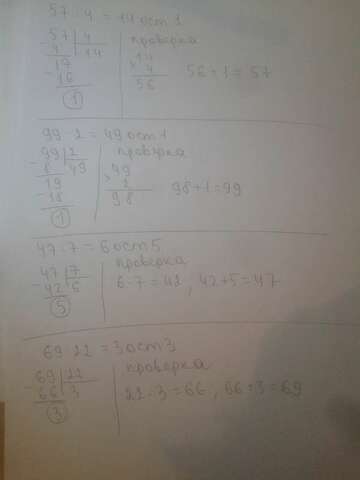 57 : 4 = 14 ост 1
57 | 4
4 | 14
17
- 16
1
проверка
14
× 4
56
56 + 1 = 57
99 : 2 = 49 ост 1
- 99 | 2
8 | 49
19
- 18
1
проверка
49
× 2
98
98 + 1 = 99
47 : 7 = 6 ост 5
- 47 | 7
42 | 6
5
проверка
6 · 7 = 42 ; 42 + 5 = 47
69 : 22 = 3 ост 3
- 69 | 22
66 | 3
3
проверка
22 · 3 = 66 , 66 + 3 = 69